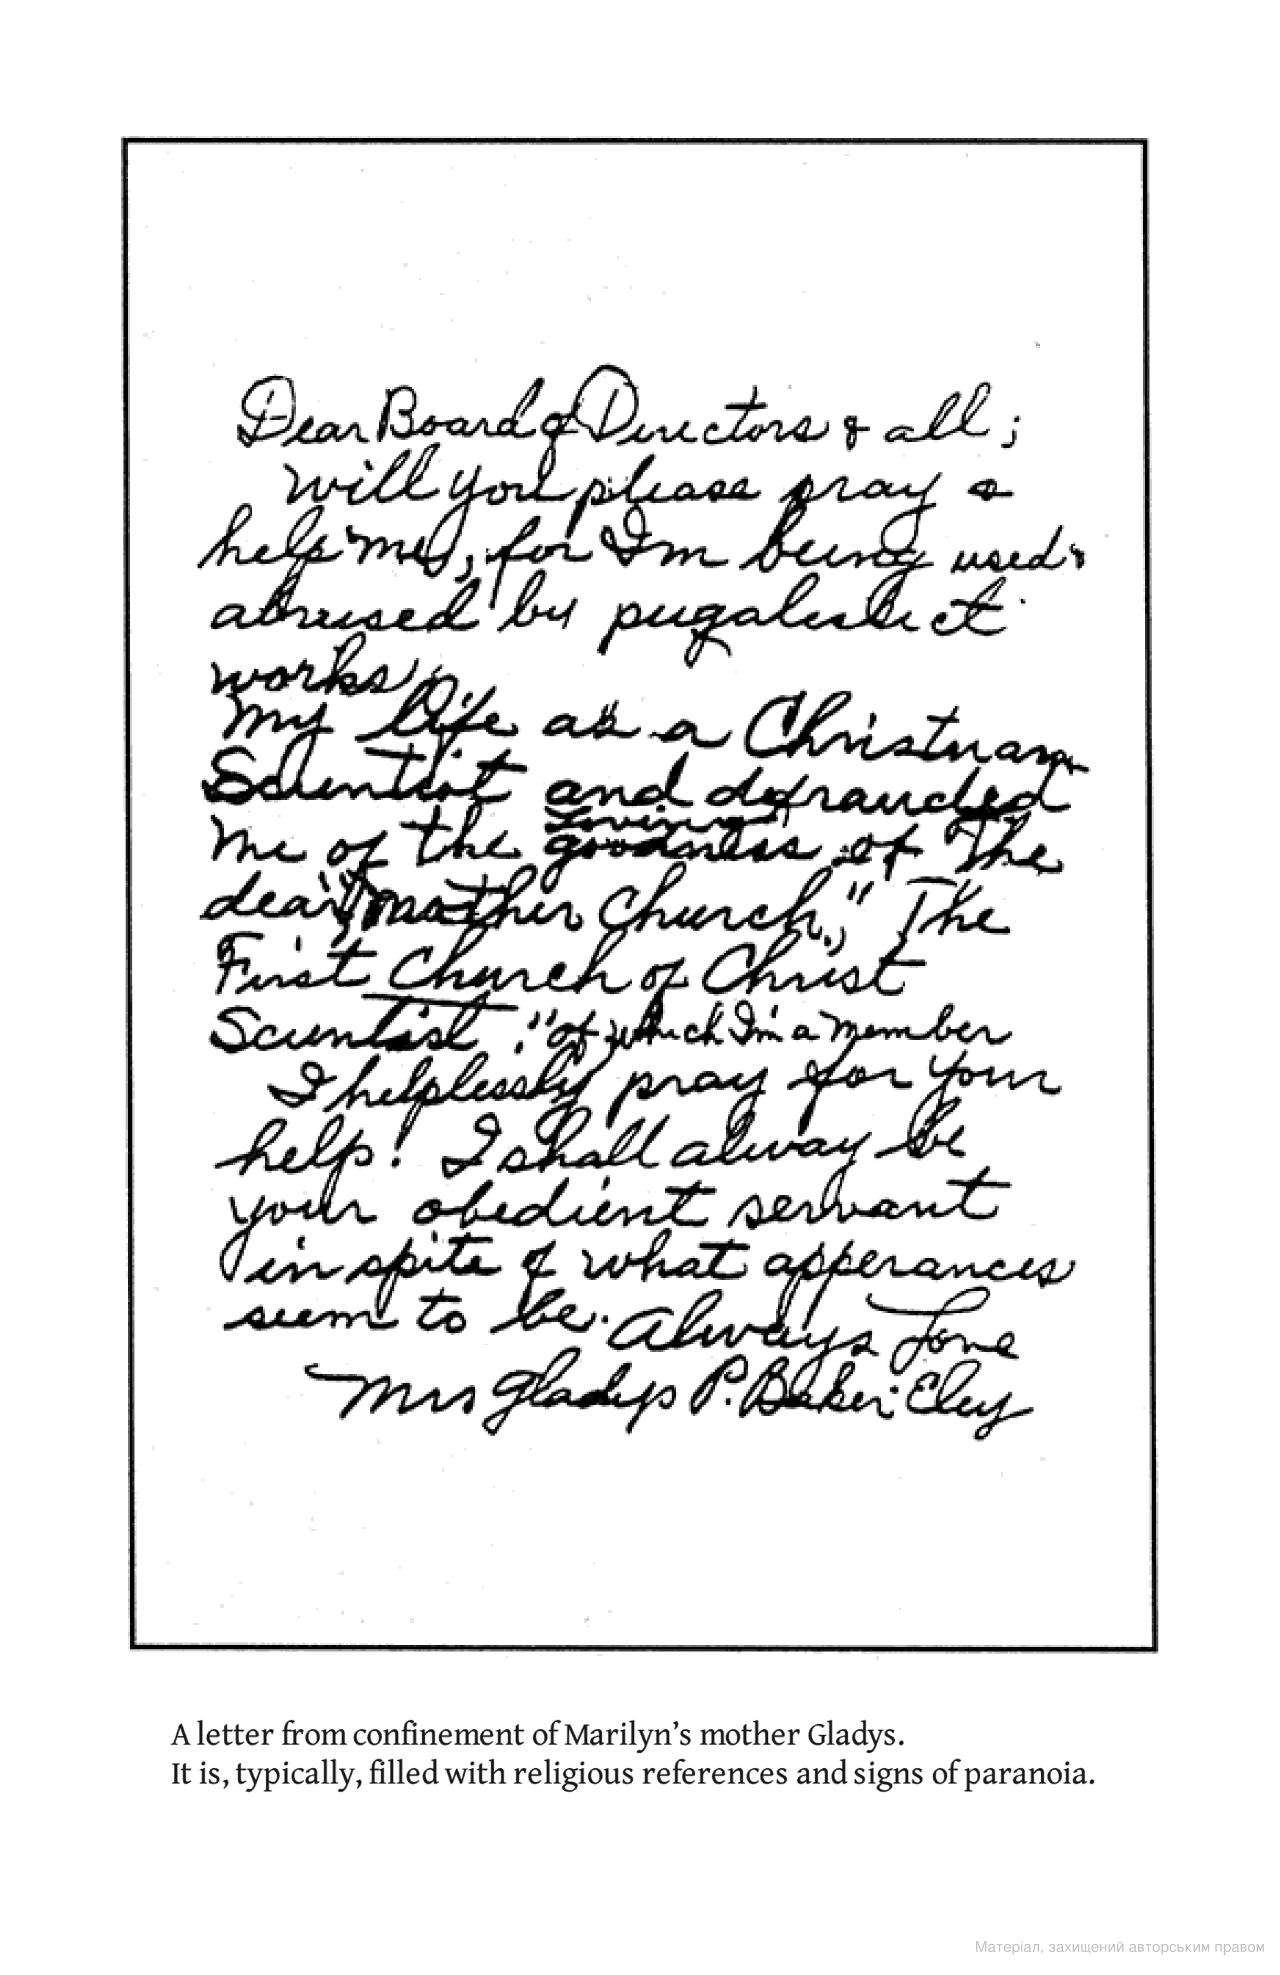 Dear Board of Directors & all;
will you please pray &
help me, for I'm being used &
abused by pugalistict
works,
my life as a Christian
Scientist and defrauded
me of the
loving
goodness of The
dear "Mother Church," The
First Church of Christ
Scientist." of which I'm a member
I helplessly pray for your
help! I shall alway be
your obedient servant
in spite of what apperances
seem to be. Always Love
Mrs Gladys P. Baker-Eley
A letter from confinement of Marilyn's mother Gladys.
It is, typically, filled with religious references and signs of paranoia.
Матеріал, захищений авторським правом